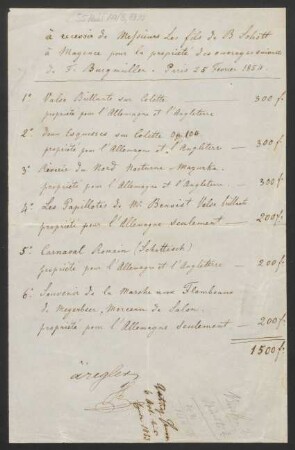 à recevoir de Messieurs Les fils de B. Schott
à Mayence pour la propriété des ouvrages suivants
de F. Burgmüller. Paris 25 Février 1854
1° Valse Brillante sur Colette 300 f.
propriété pour l'Allemagne et l'Angleterre
2° Deux Esquisses sur Colette op. 104
propriété pour l'Allemagne et l'Angleterre — 300 f.
3° Rêverie du Nord Nocturne-Mazurka
propriété pour l'Allemagne et l'Angleterre — 300 f.
4° Les Papillotes de Mr. Benoist Valse brillante
propriété pour l'Allemagne seulement — 200 f.
5° Carnaval Romain (Schottisch)
propriété pour l'Allemagne et l'Angleterre 200 f.
6° Souvenir de la Marche aux Flambeaux
de Meyerbeer, Morceau de Salon
propriété pour l'Allemagne seulement — 200 f.
1500 f.